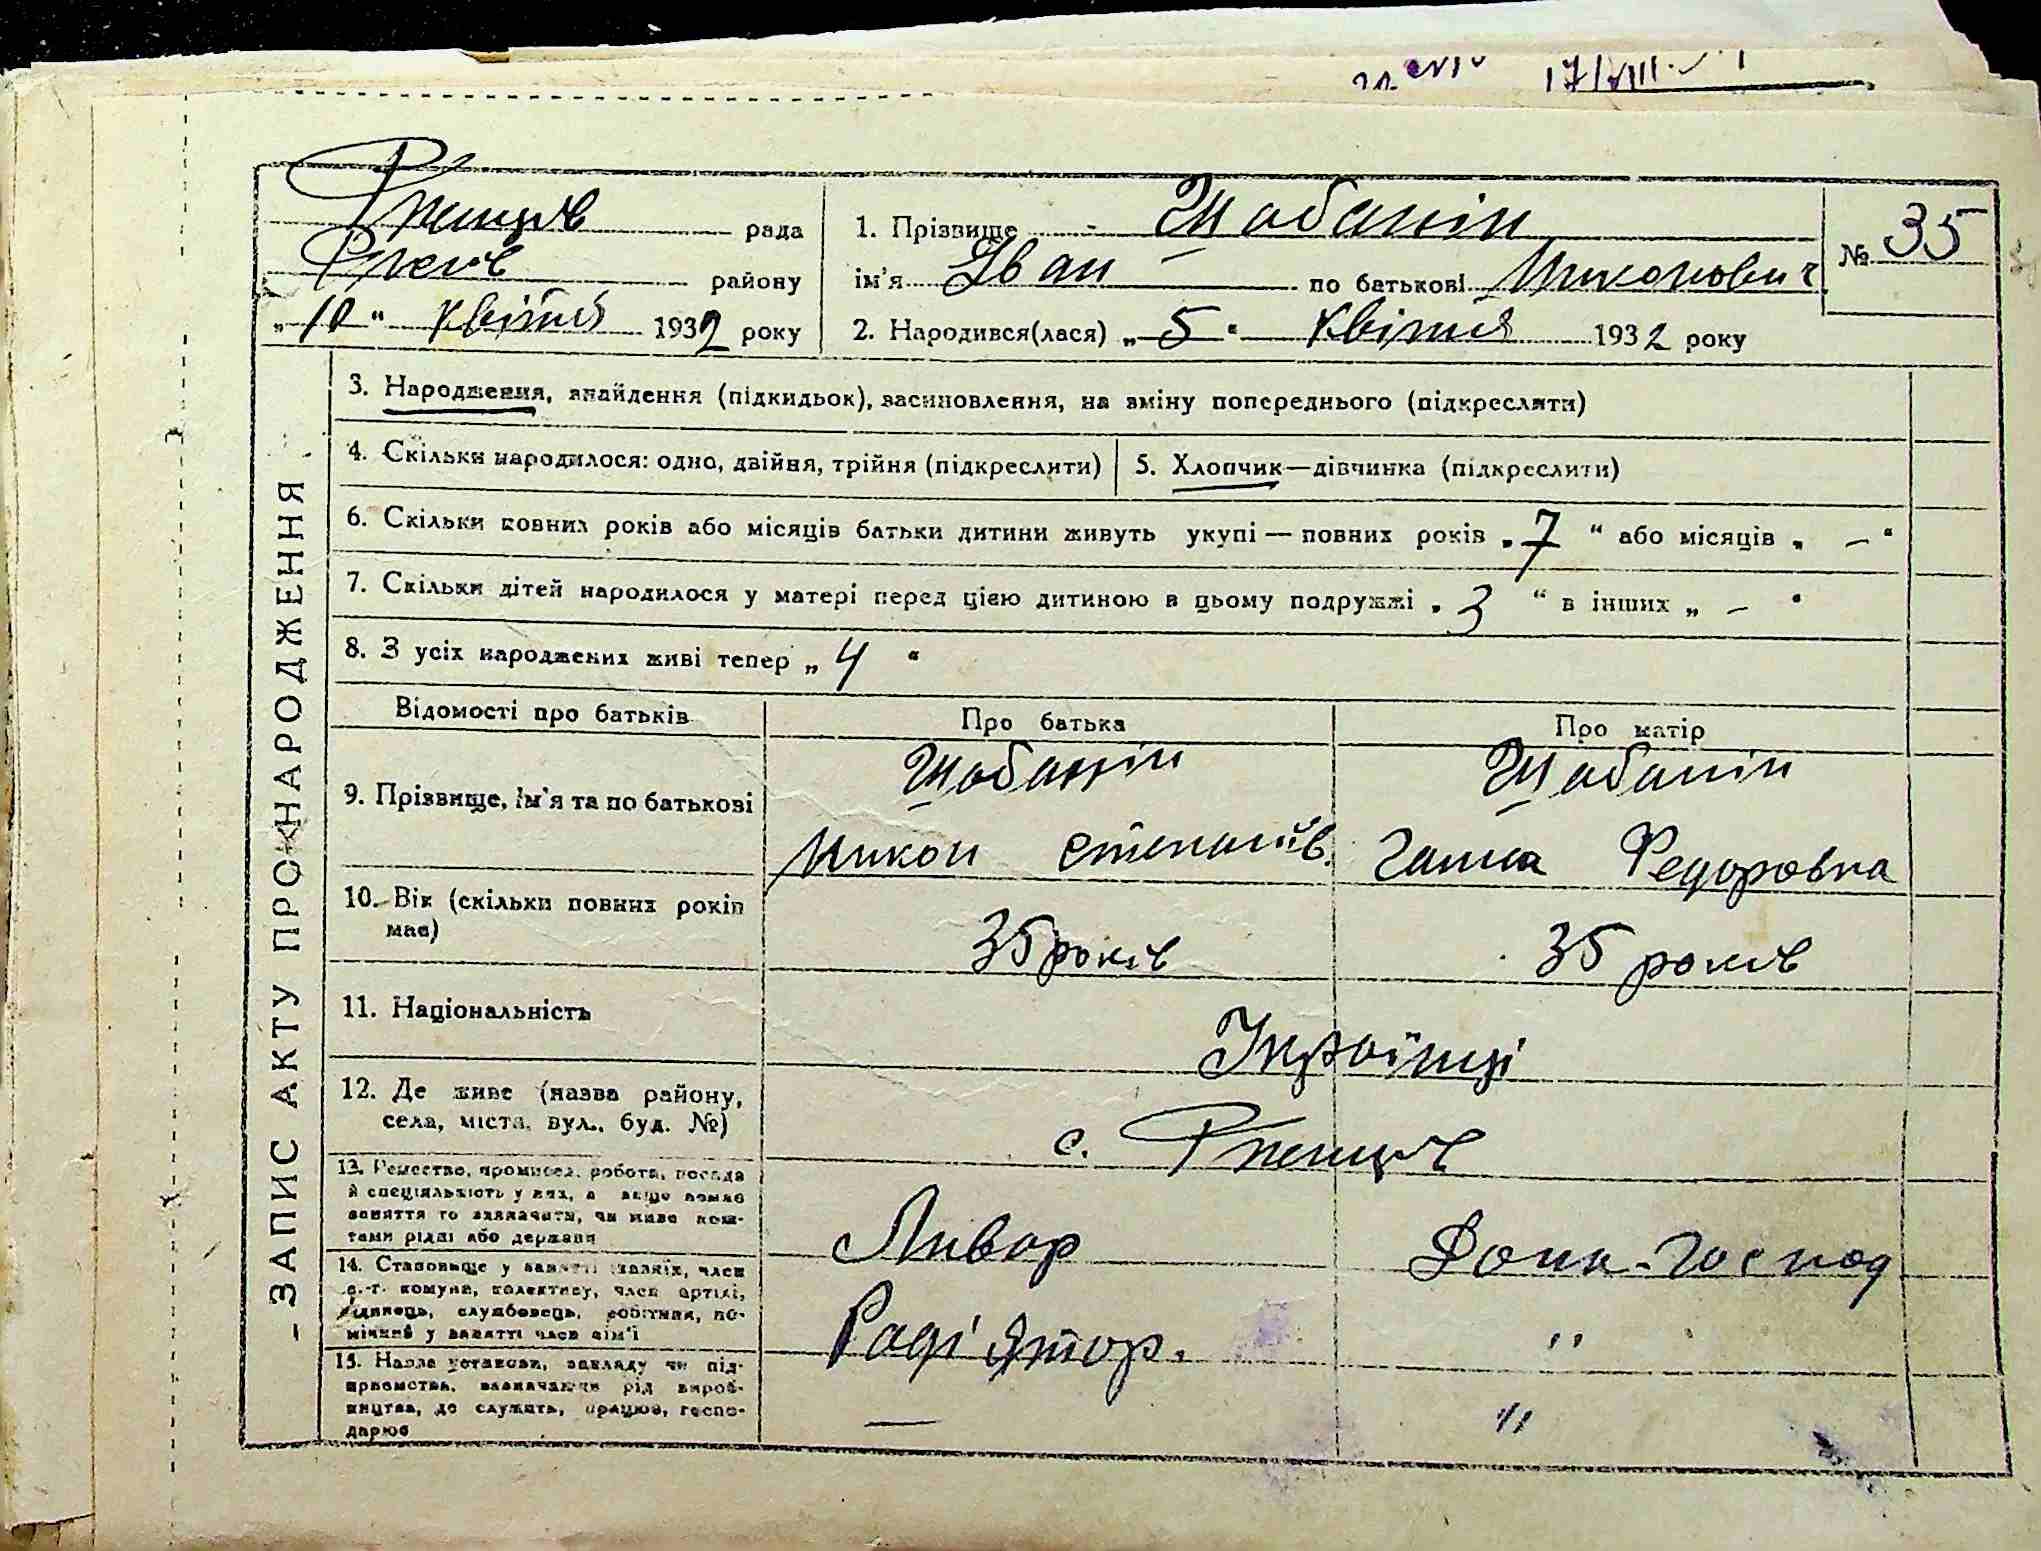 17/VIII
Ріпецьк рада
району
„10“ квітня 1932 року
1. Прізвище Шабанін
№ 35
ім'я Іван по батькові Миконович
2. Народився(лася) „5“ квітня 1932 року
3. Народження, знайдення (підкидьок), засиновлення, на зміну попереднього (підкреслити)
4. Скільки народилося: одно, двійня, трійня (підкреслити)
5. Хлопчик—дівчинка (підкреслити)
6. Скільки повних років або місяців батьки дитини живуть укупі — повних років „7“ або місяців „—“
7. Скільки дітей народилося у матері перед цією дитиною в цьому подружжі „3“ в інших „—“
8. З усіх народжених живі тепер „4“
ЗАПИС АКТУ ПРО НАРОДЖЕННЯ
Відомості про батьків
Про батька
Про матір
9. Прізвище, ім'я та по батькові
Шабанін
Микон Степанів.
Шабанін
Ганна Федоровна
10. Вік (скільки повних років
має)
35 років
35 років
11. Національність
Українці
12. Де живе (назва району,
села, міста, вул., буд. №)
с.
13. Ремество, промисел, робота, посада
й спеціяльність у них, а якщо немає
заняття то зазначити, чи живе кош-
тами рідні або держави
Ливар
Дома-господ
14. Становище у занятті: хазяїн, член
с.-г. комуни, колективу, член артілі,
одинець, службовець, робітник, по-
мічний у занятті член сім'ї
Радіятор.
"
15. Назва установи, закладу чи під-
приємства, зазначаючи рід вироб-
ництва, де служить, працює, госпо-
дарює
—
"